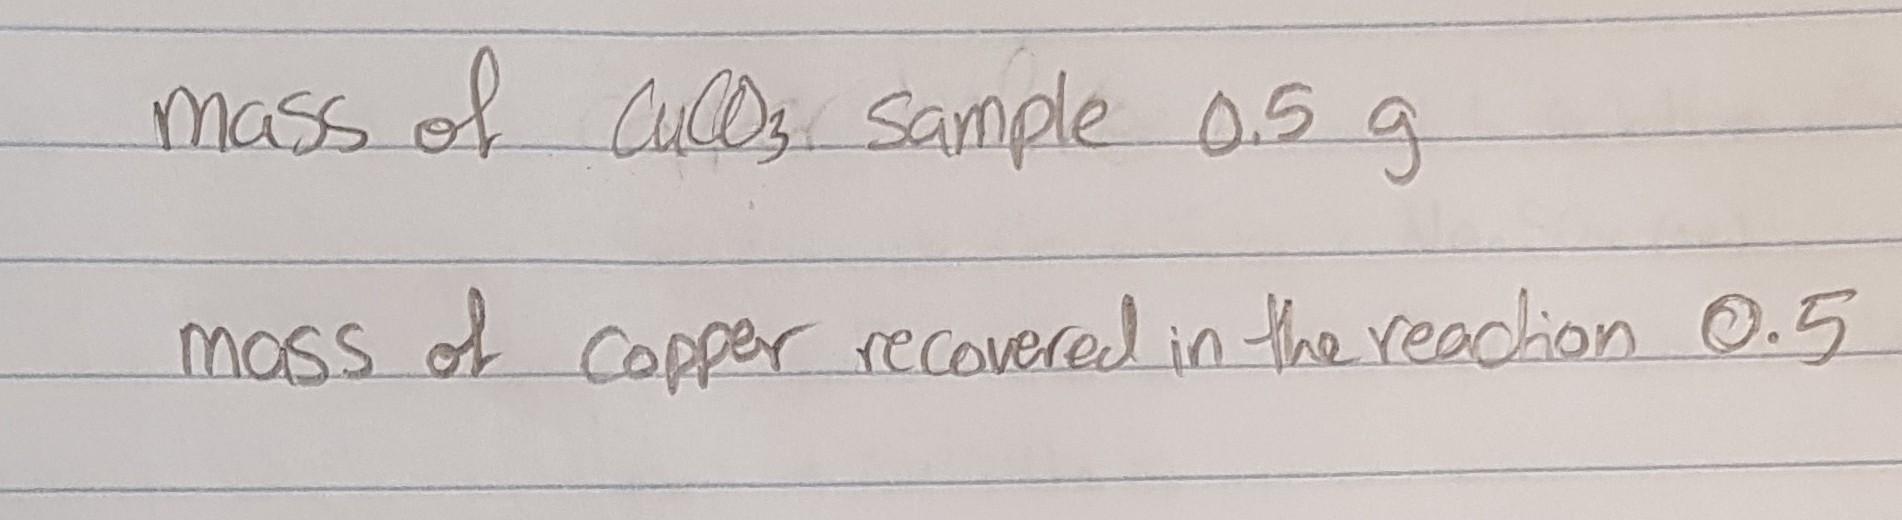 mass of CuCO₃ sample 0.5 g
mass of copper recovered in the reaction 0.5